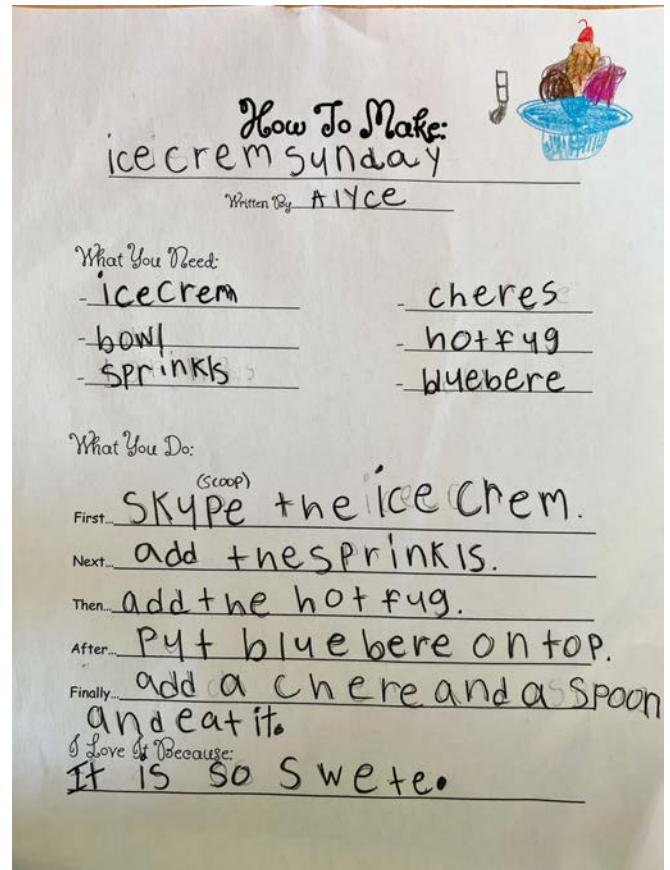 How To Make:
ice crem sunday
Written By Alyce
What You Need:
- ice crem
- cheres
- bowl
- hot fug
- sprinkls
- bluebere
What You Do:
(scoop)
First... skype the ice crem.
Next... add the sprinkls.
Then... add the hot fug.
After... Put bluebere on top.
Finally... add a chere and a spoon
and eat it.
I Love It Because:
It is so swete.